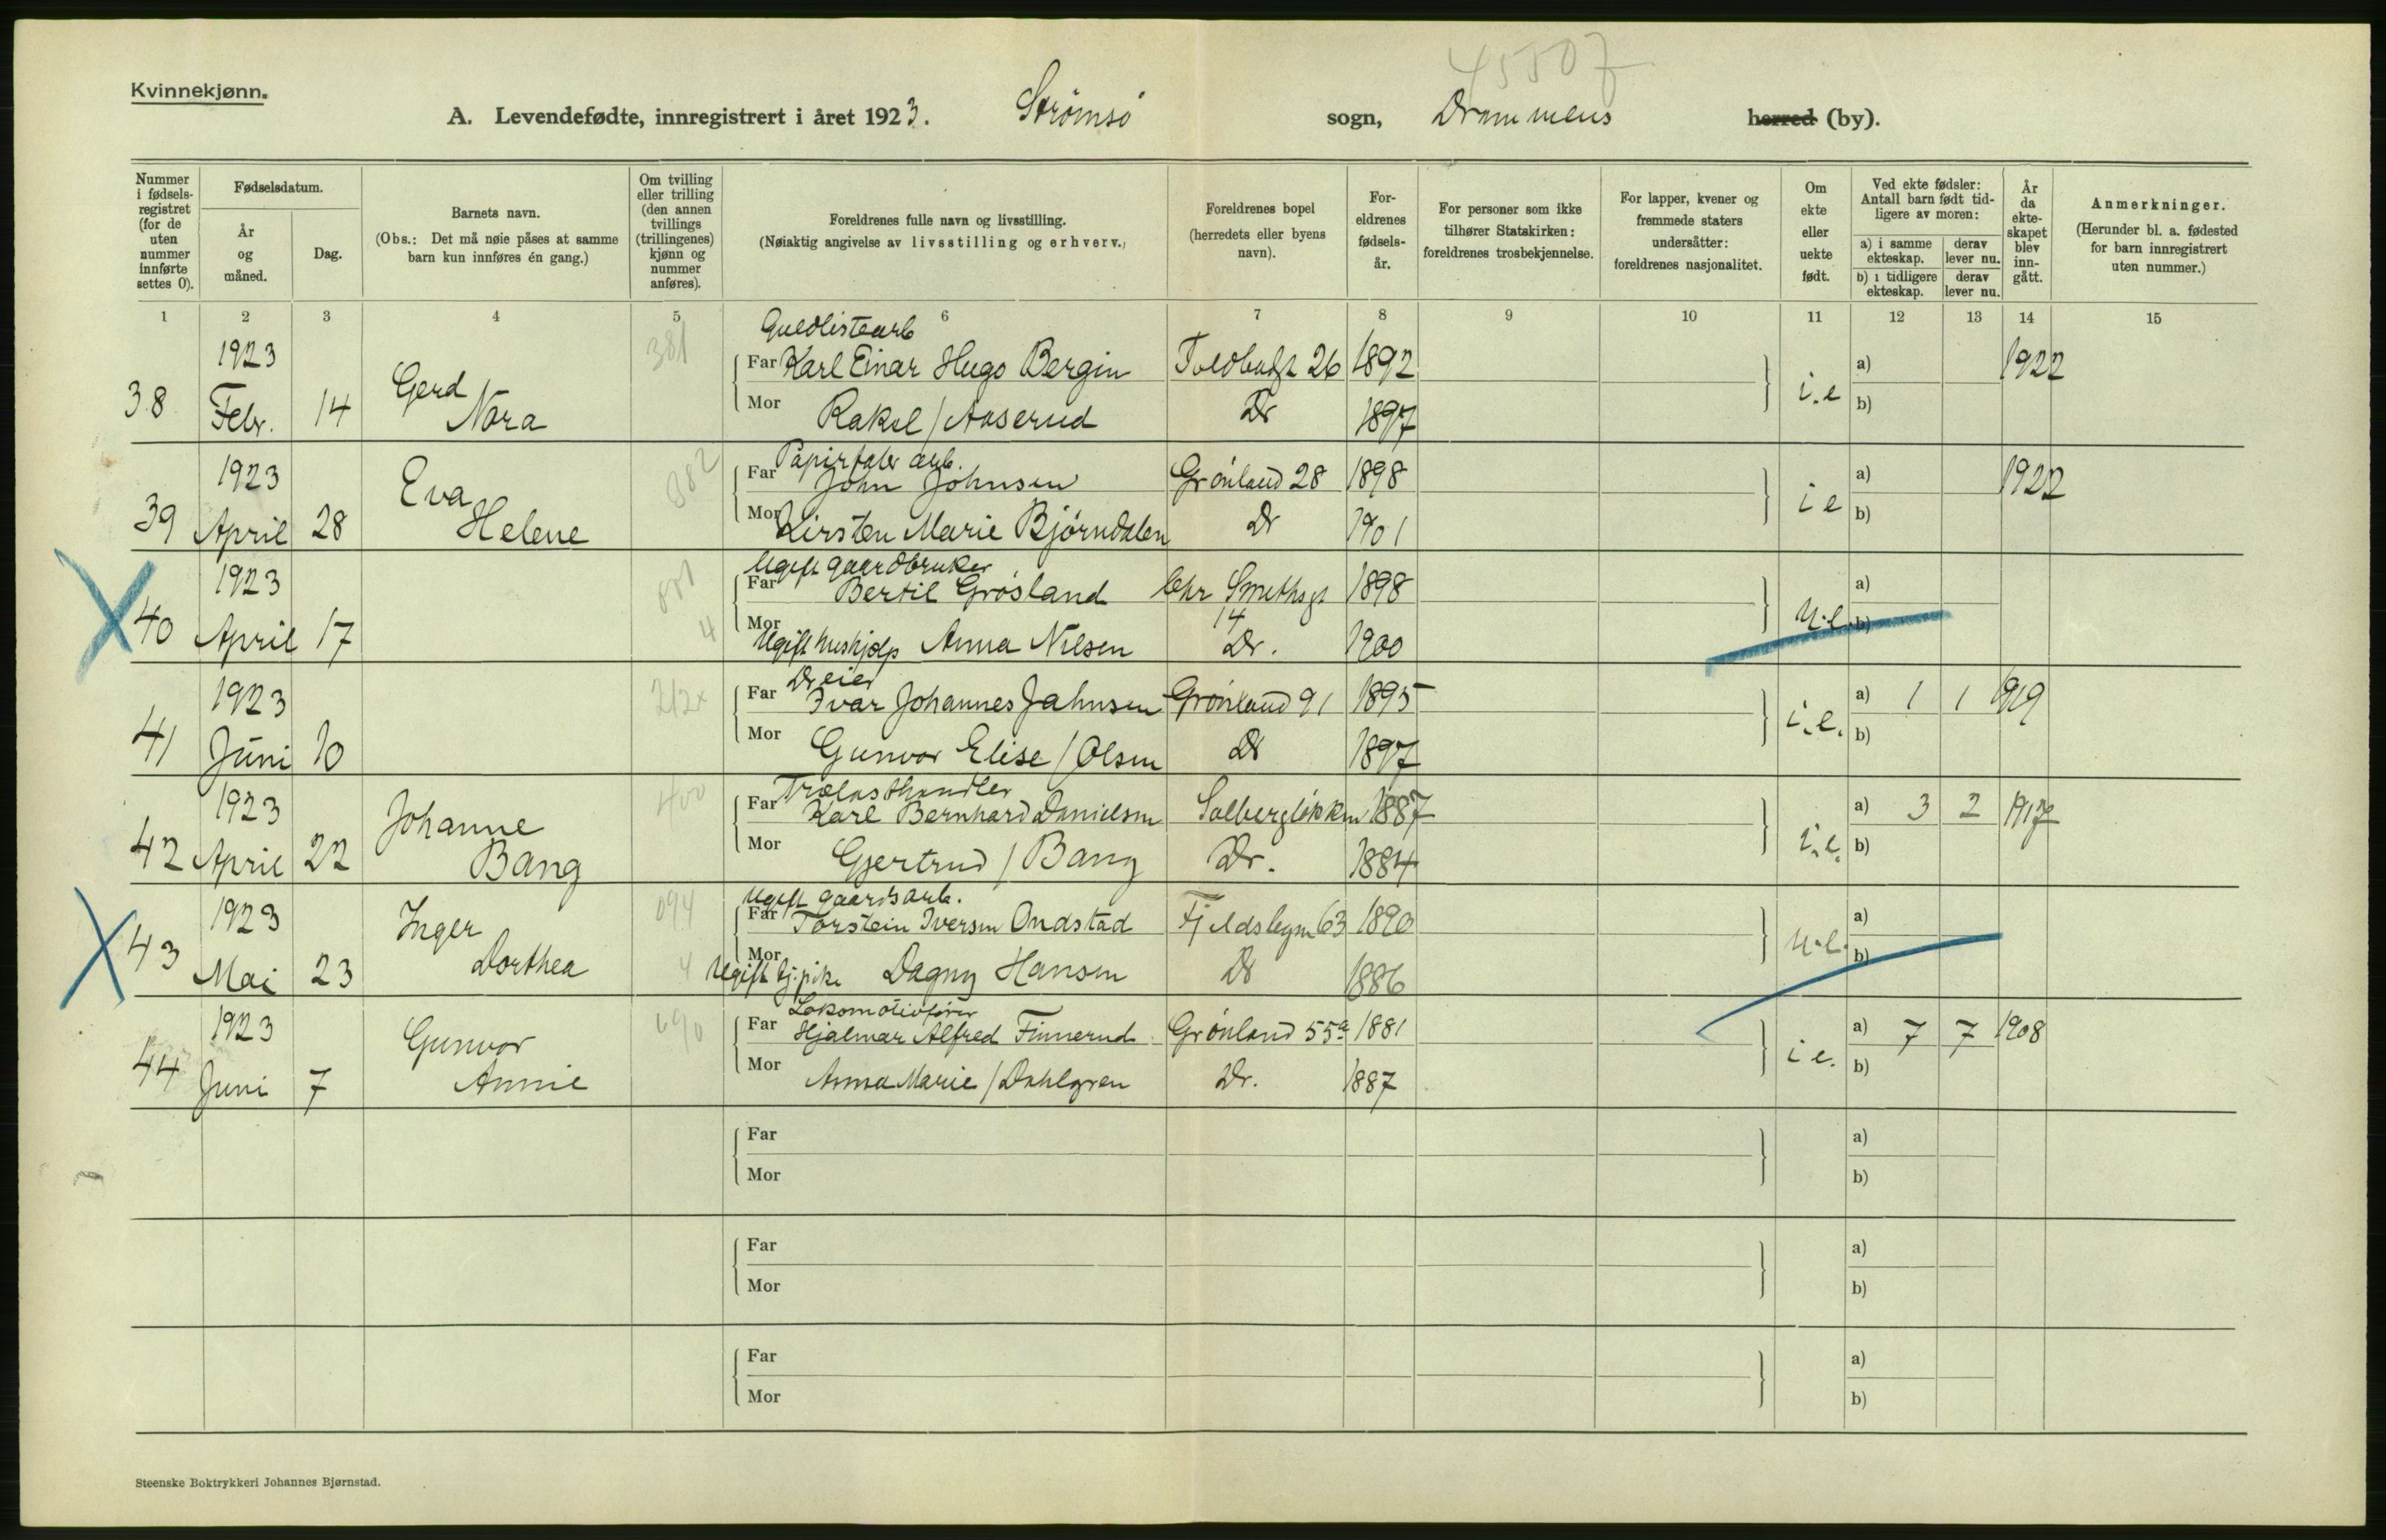 45507
Kvinnekjønn.
A. Levendefødte, innregistrert i året 1923. Strømsø sogn, Drammens herred (by).
Nummer i fødselsregistret (for de uten nummer innførte settes 0).
Fødselsdatum.
År og måned.
Dag.
Barnets navn.
(Obs.: Det må nøie påses at samme barn kun innføres én gang.)
Om tvilling eller trilling (den annen tvillings (trillingenes) kjønn og nummer anføres).
Foreldrenes fulle navn og livsstilling.
(Nøiaktig angivelse av livsstilling og erhverv.)
Foreldrenes bopel (herredets eller byens navn).
Foreldrenes fødselsår.
For personer som ikke tilhører Statskirken: foreldrenes trosbekjennelse.
For lapper, kvener og fremmede staters undersåtter: foreldrenes nasjonalitet.
Om ekte eller uekte født.
Ved ekte fødsler: Antall barn født tidligere av moren:
a) i samme ekteskap. derav lever nu.
b) i tidligere ekteskap. derav lever nu.
År da ekteskapet blev inngått.
Anmerkninger.
(Herunder bl. a. fødested for barn innregistrert uten nummer.)
1 2 3 4 5 6 7 8 9 10 11 12 13 14 15
381 Guldlistearb
1923 Far Karl Einar Hugo Bergin Toldbodgt 26 1892 a) 1922
38 Febr. 14 Gerd Nora Mor Raksel / Aaserud Dr 1897 i.e b)
382 Papirfabr arb.
1923 Far John Johnsen Grönland 28 1898 a) 1922
39 April 28 Eva Helene Mor Kirsten Marie Björndalen Dr 1901 i e b)
Ugift gaardbruker
1923 Far Bertil Grösland Chr Smethsgt 14 1898 a)
40 April 17 4 Mor Ugift hushjælp Anna Nilsen Dr. 1900 u.e. b)
212x Dreier
1923 Far Ivar Johannes Jahnsen Grönland 91 1895 a) 1 1 1919
41 Juni 10 Mor Gunvor Elise / Olsen Dr 1897 i.e. b)
400 Trælasthandler
1923 Far Karl Bernhard Danielsen Solbergløkken 1887 a) 3 2 1917
42 April 22 Johanne Bang Mor Gjertrud / Bang Dr. 1884 i.e. b)
094 Ugift gaardsarb.
1923 Far Torstein Iversen Ondstad Fjeldsbyen 63 1890 a)
43 Mai 23 Inger Dorthea 4 Mor Ugift tj.pike Dagny Hansen Dr 1886 u.e. b)
690 Lokomotivfører
1923 Far Hjalmar Alfred Finnerud Grönland 55a 1881 a) 7 7 1908
44 Juni 7 Gunvor Annie Mor Anna Marie / Dahlgren Dr. 1887 i e. b)
Far a)
Mor b)
Far a)
Mor b)
Far a)
Mor b)
Steenske Boktrykkeri Johannes Bjørnstad.